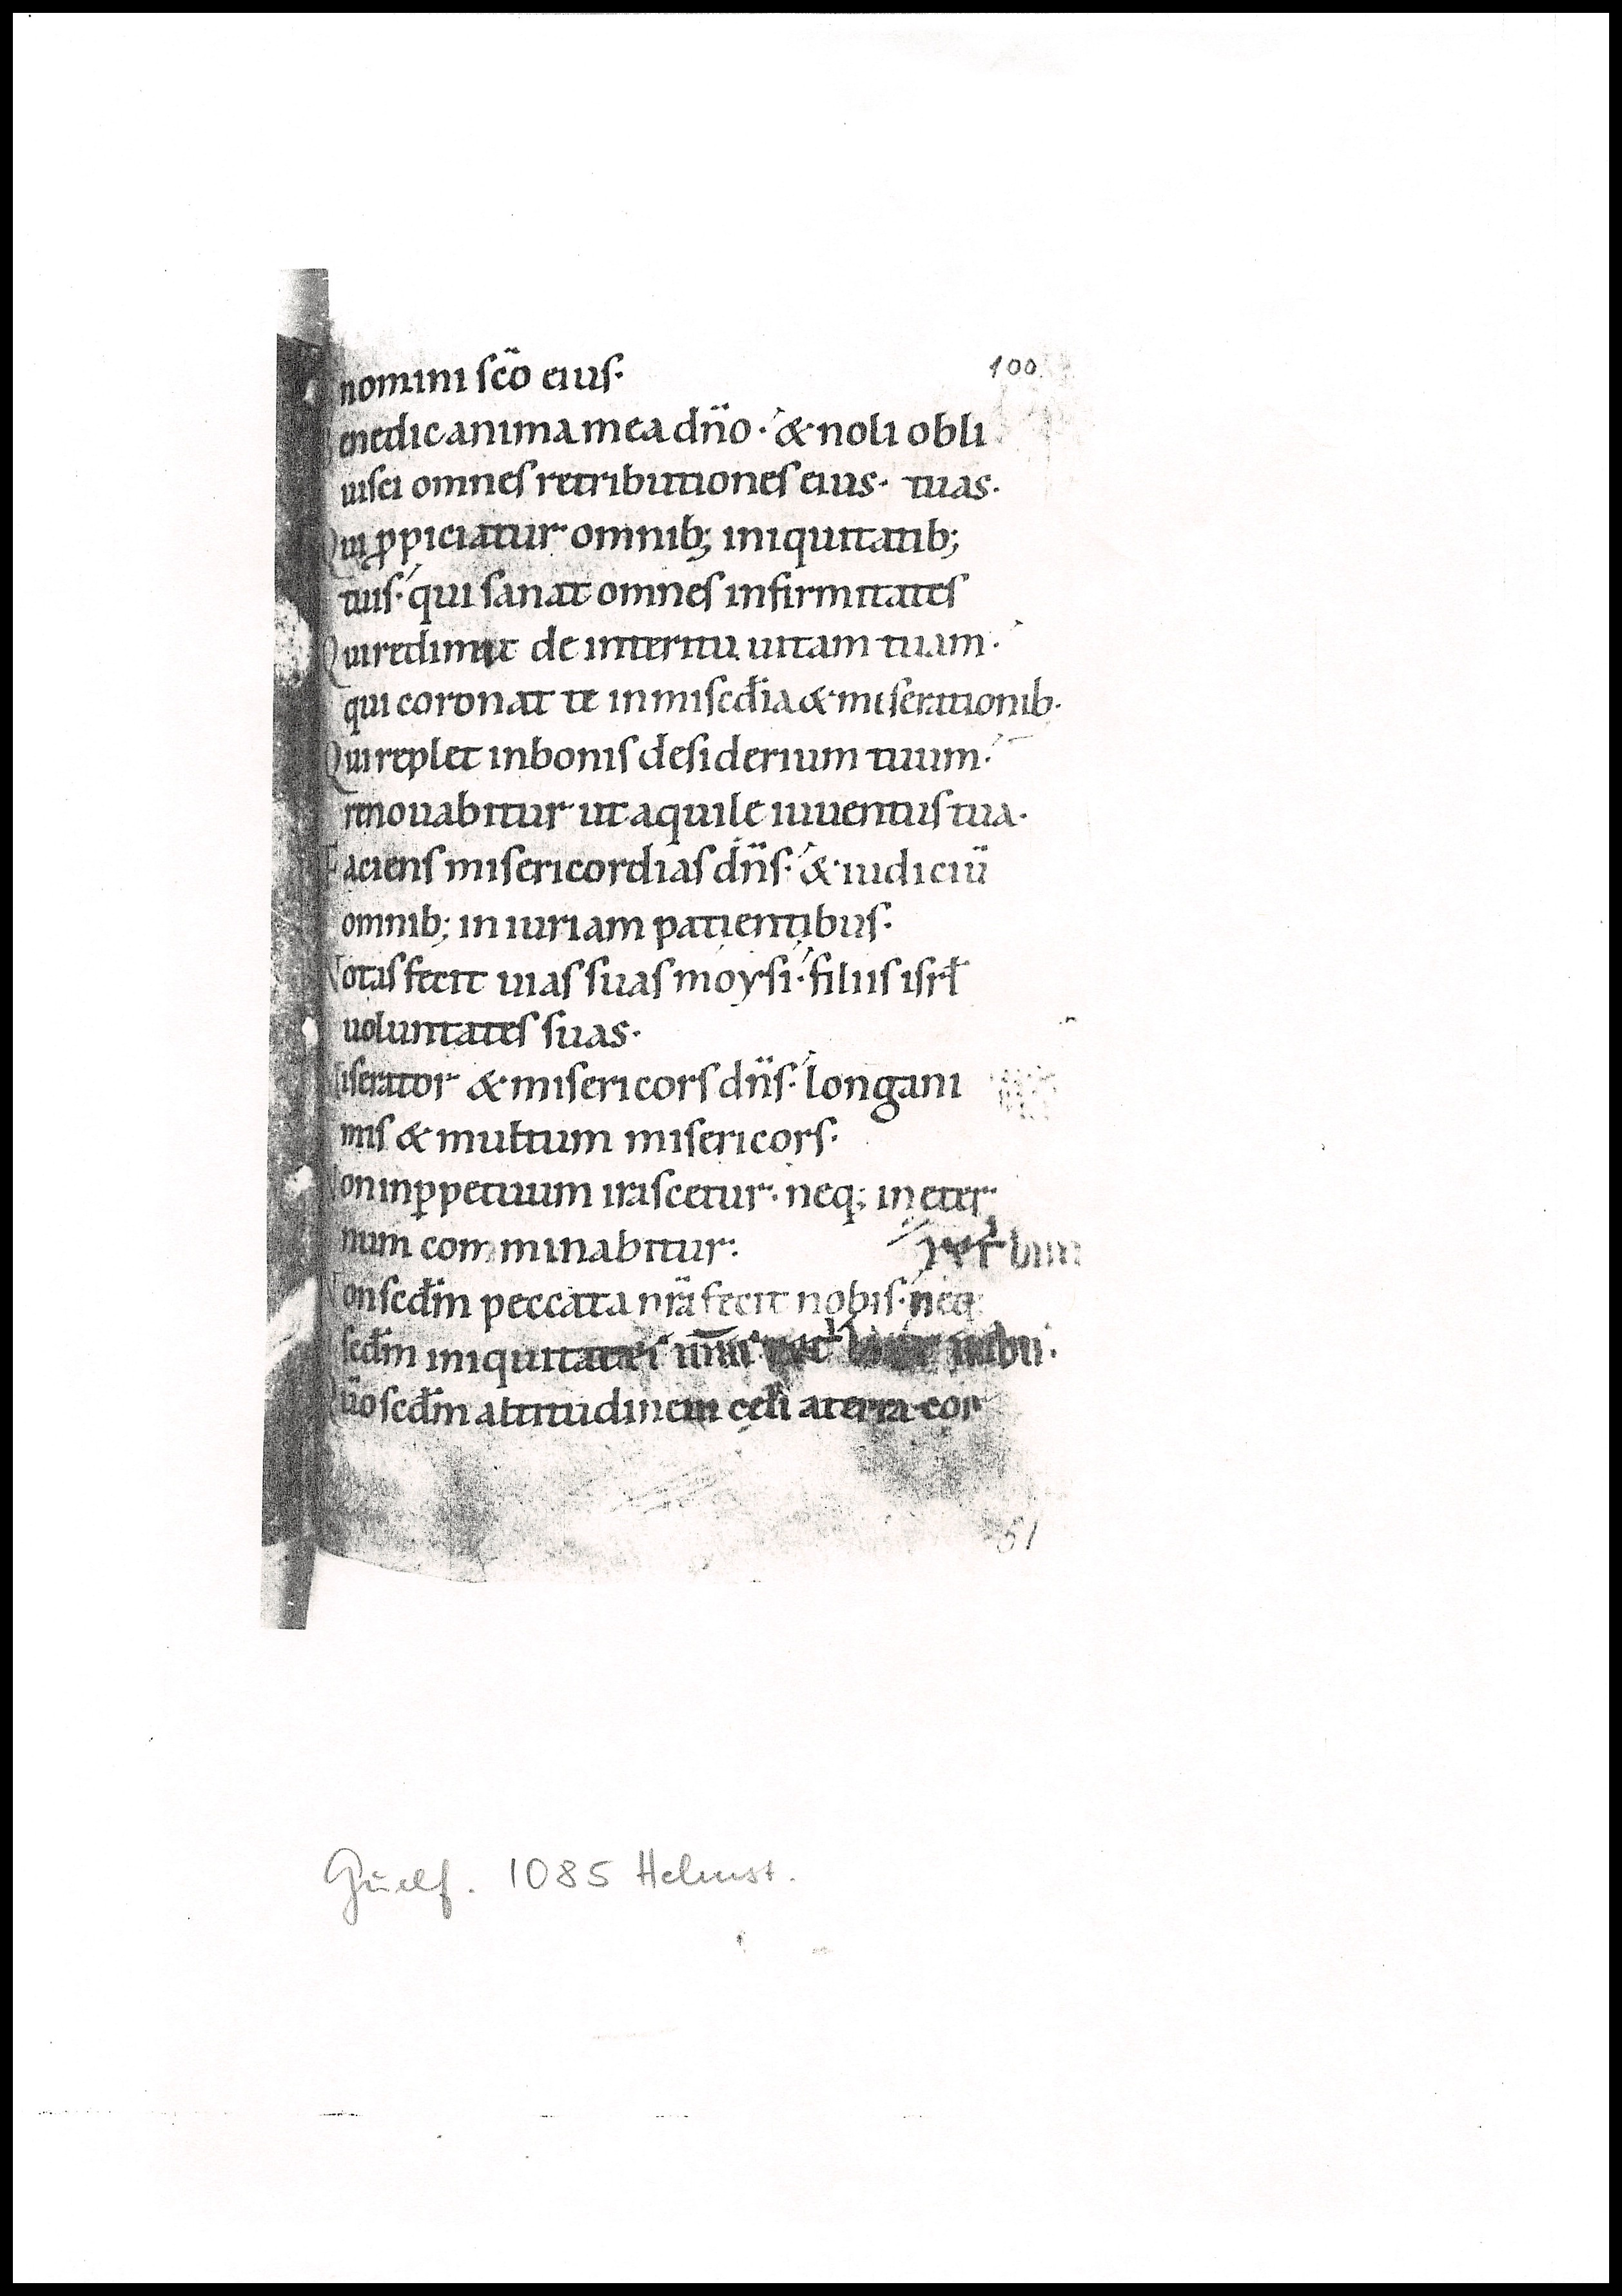 100
nomini sc̄o eius·
Benedic anima mea dn̄o· & noli obli
uisci omnes retributiones eius· tuas·
Qui ꝓpiciatur omnib; iniquitatib;
tuis· qui sanat omnes infirmitates
Qui redimit de interitu uitam tuam·
qui coronat te in misc̄dia & miserationib·
Qui replet in bonis desiderium tuum·
renouabitur ut aquile iuuentus tua·
Faciens misericordias dn̄s· & iudiciū
omnib; iniuriam patientibus·
Notas fecit uias suas moysi· filiis isrł
uoluntates suas·
Miserator & misericors dn̄s· longani
mis & multum misericors·
Non in ꝑpetuum irascetur· neq; in eter
num comminabitur·
Non scd̄m peccata nr̄a fecit nobis· neq;
scd̄m iniquitates
Qūo scd̄m altitudinem celi a terra cor
51
Guelf. 1085 Helmst.